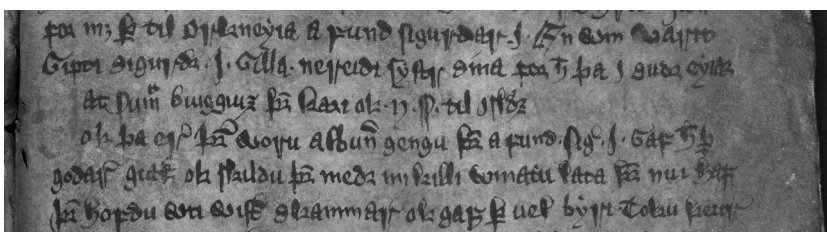 for mz þr til orkneyia a fund sigurdar .J. En wm warit
Gipti sigurdr .J. Gilla. nereidi systur sina for h̄ þa i sudr eyiar
at sumri buigguz þr kari ok .n. s. til isldz
ok þa er þr woru albun̄ gengu þr a fund sig .J. Gaf h̄ þ
godar giaf ok skildu þr med mikilli winattu lata þr nu i haf
þr hofdu wti wist skammar ok gaf þr uel byri Toku þeir